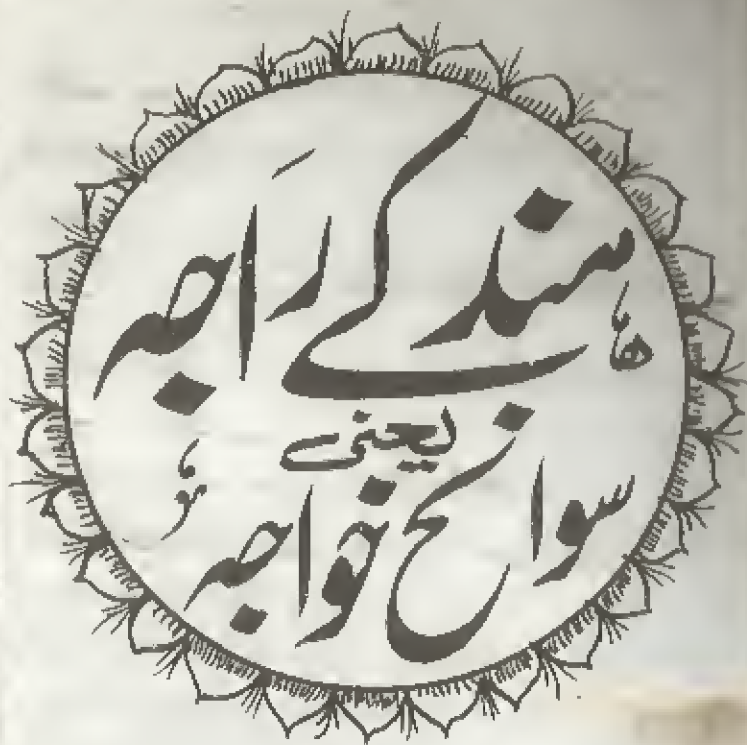 ہند کے رَاجہ
یعنی
سوانح خواجہ